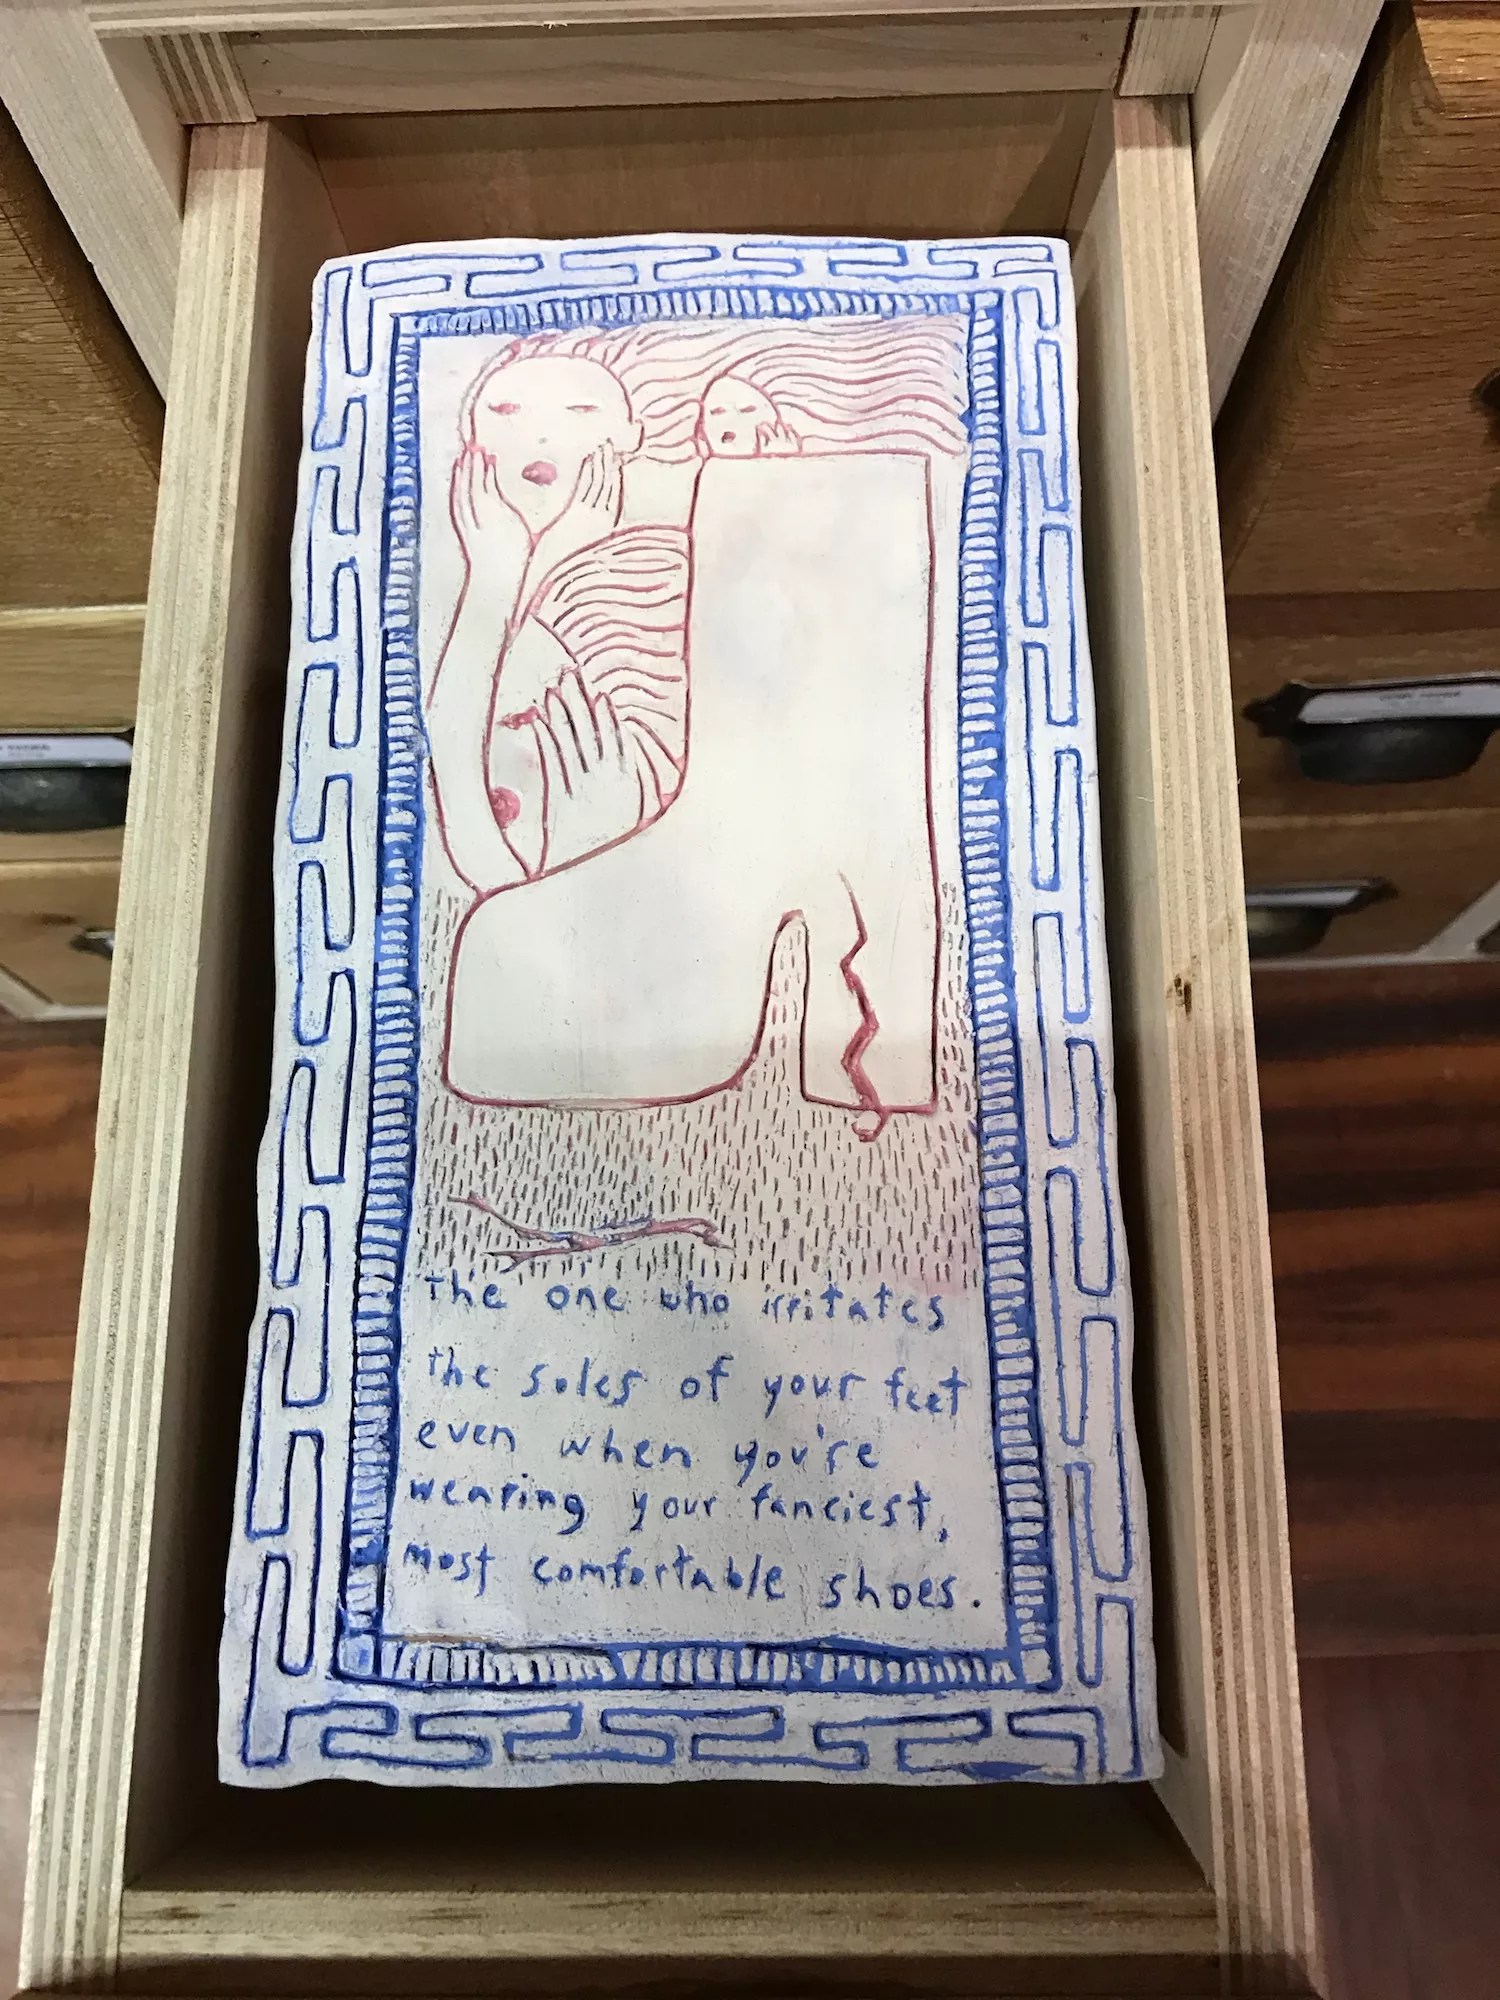 The one who irritates
the soles of your feet
even when you're
wearing your fanciest,
most comfortable shoes.